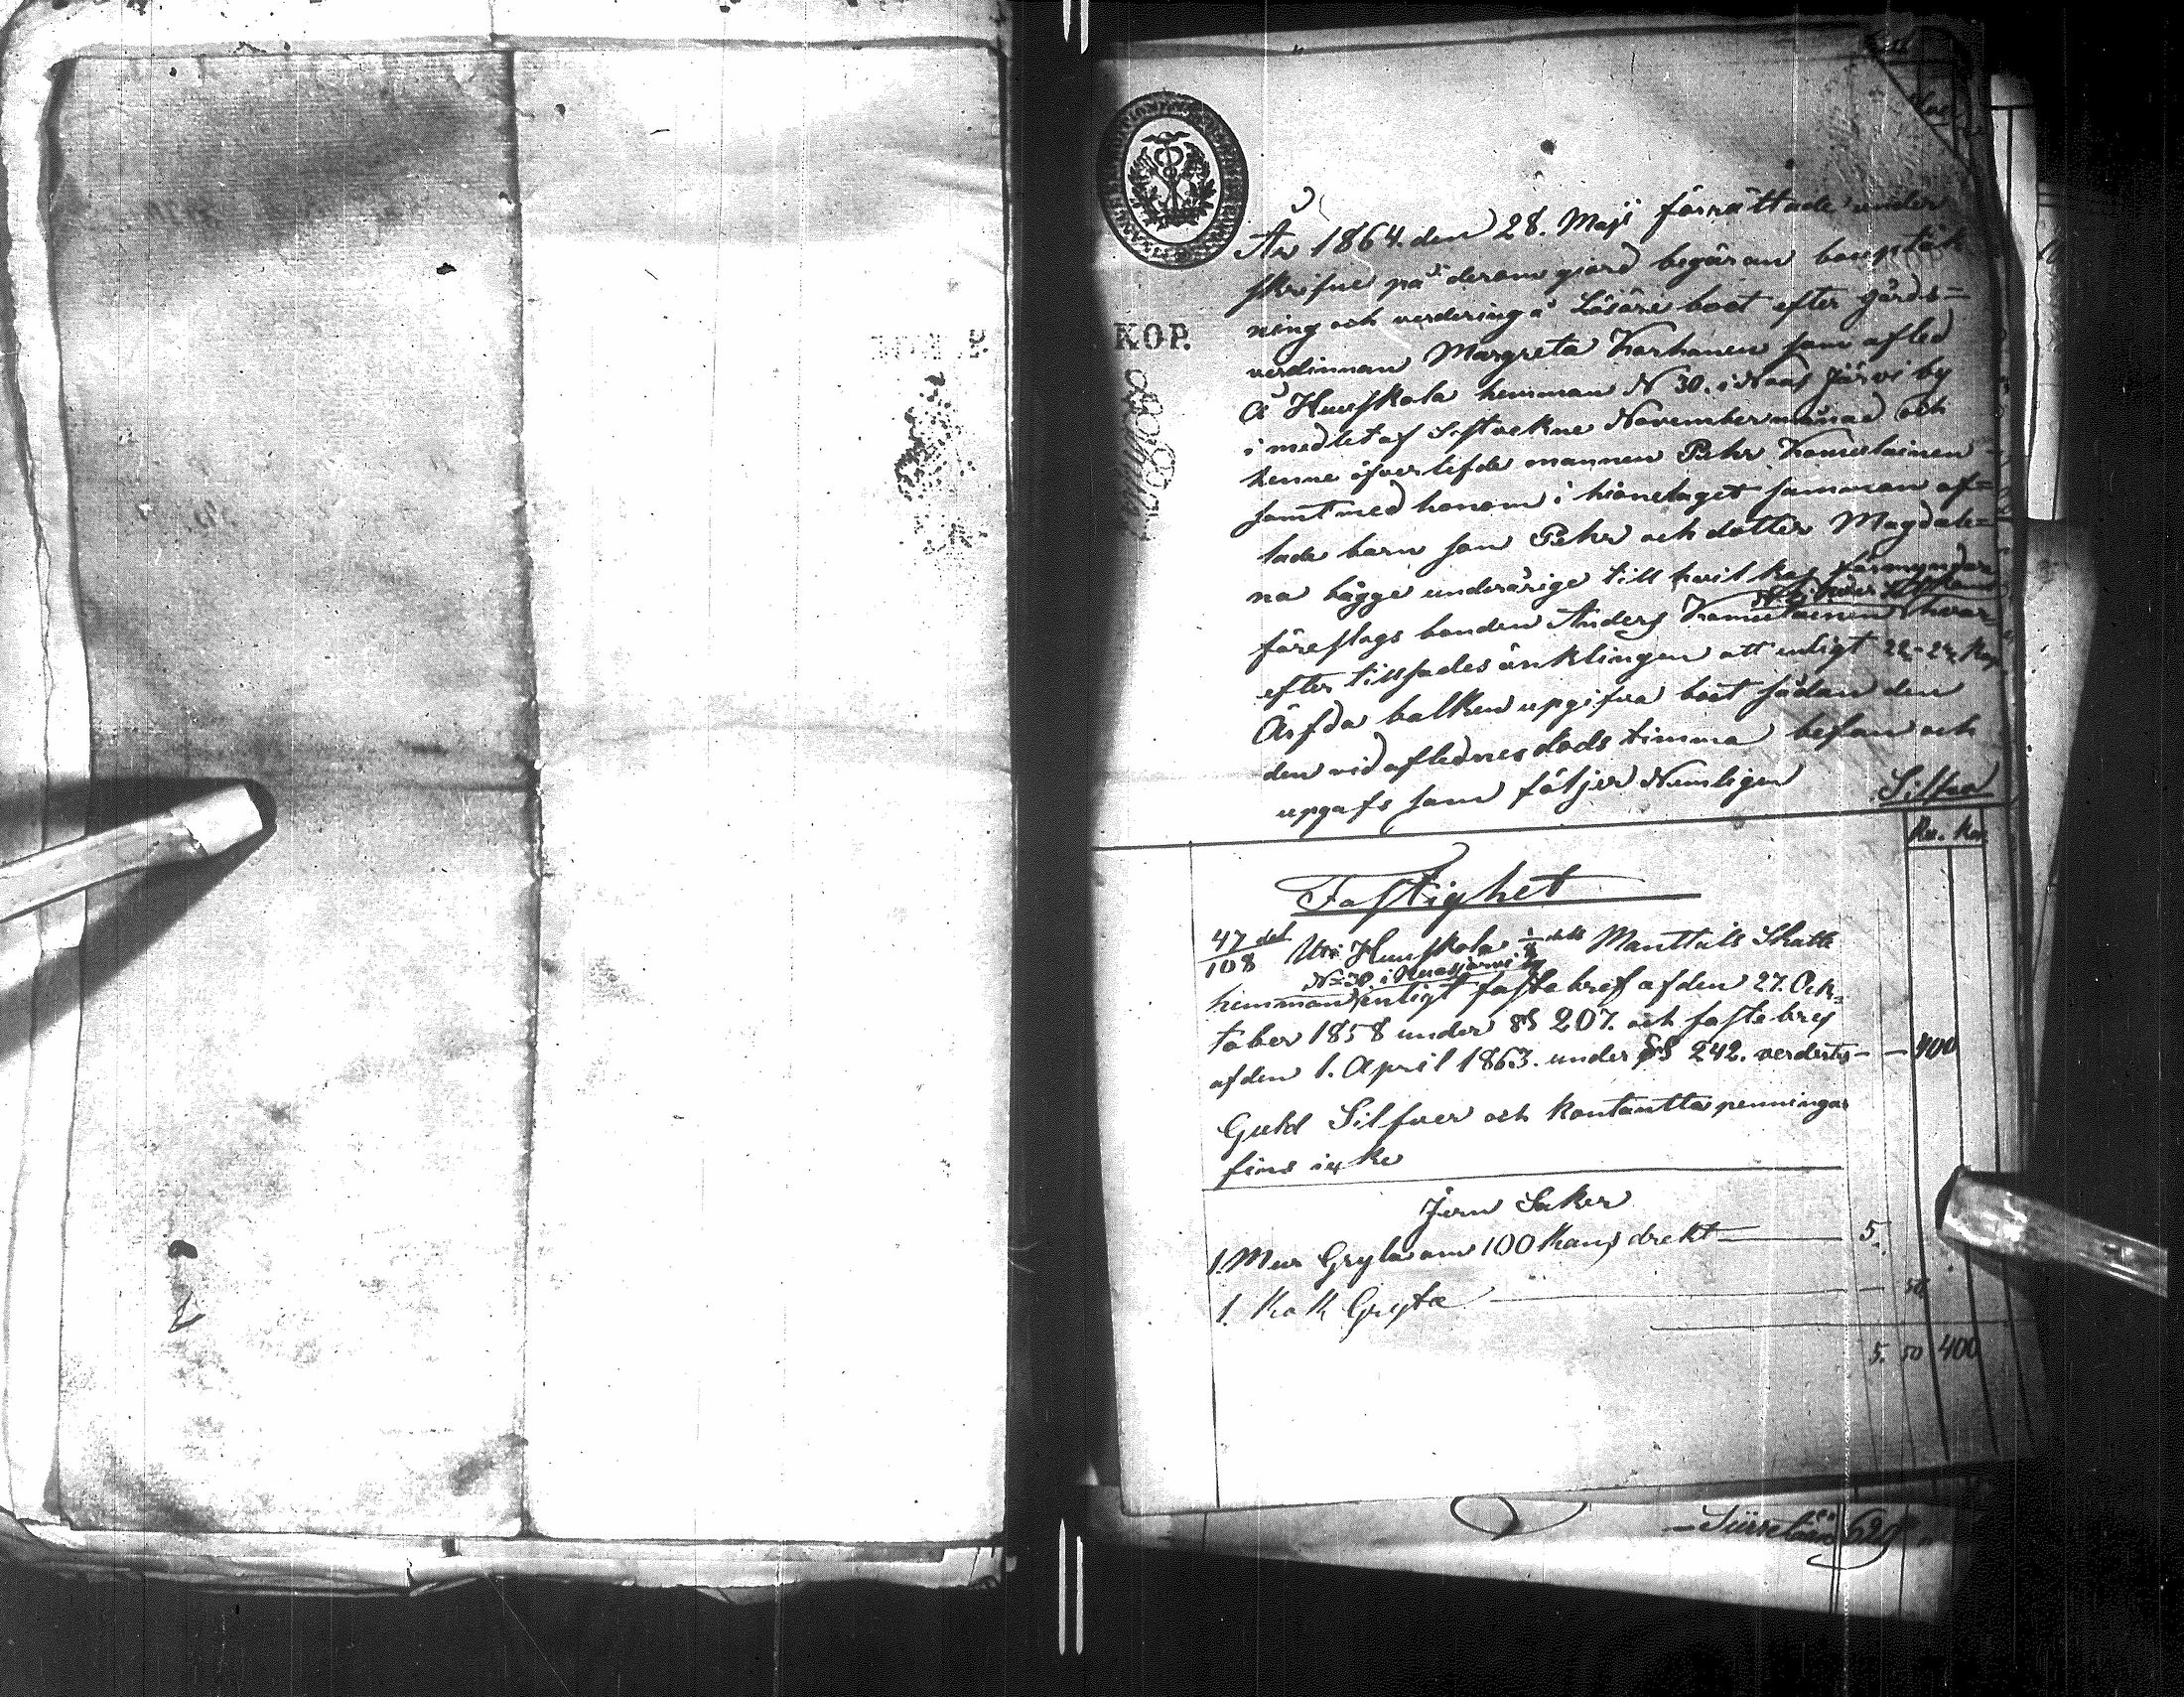 KOP.
År 1864. den 28. Maji förrättade under
skrifne på derom giord begäran bouptäk
ning och verdering å Lösöre boet efter gårds=
verdinnan Margreta Korhonen som afled
å Hunskala hemman N 30. i Naas Järvi by
i medlet af sistvekne November månad och
henne öfverlefde mannen Pehr Komulainen
samt med honom i hionelaget samman af=
lade barn son Pehr och dotter Magdale=
na bägge underårige till hvilkas förmyndare
föreslogs bonden Anders Komulainen hvar
efter tillsades änklingen att enligt Kap
Ärfda balken upgifva boet sådan den
den vid aflednes dods timma befan och
upgafs som följer Nemligen Silfver
Ru. Kop.
Fastighet
47/108 del Uti Hunskala 1/8 dels Manttals Skatte
N=30. i Naasjärvi by
hemman enligt fastebref af den 27. Ock=
tober 1858 under §§ 207. och fastebref
af den 1. April 1863. under §§ 242. verderts - - 400
Guld Silfver och kontantta penningar
fins icke
Jern Saker
1. Mur Gryta om 100 Kans drekt 5.
1. Kok Gryta - 50
5. 50 400
620